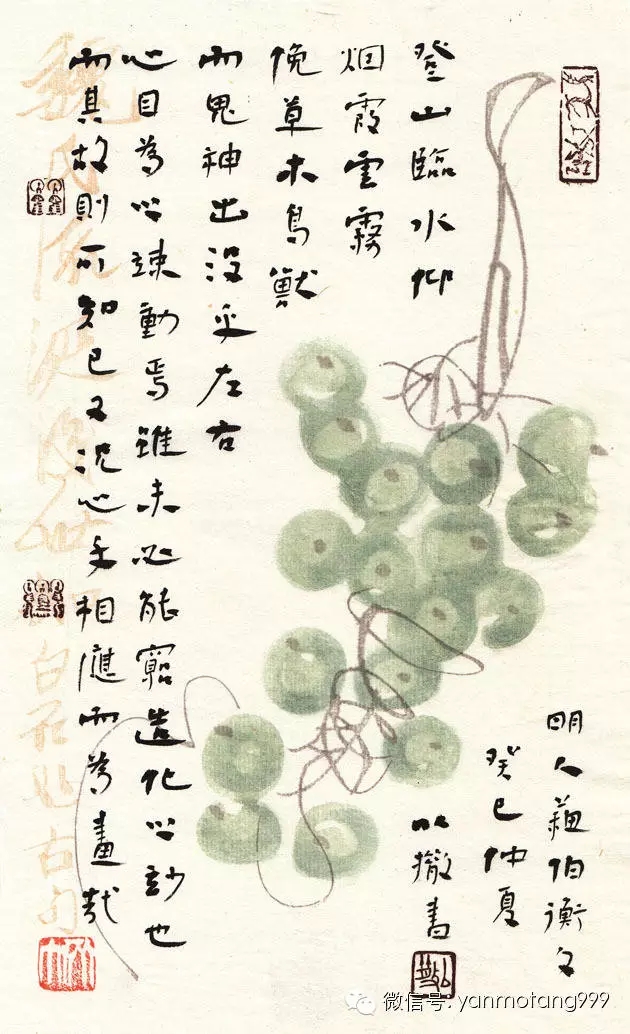 登山臨水仰
烟霞雲霧
俛草木鳥獸
而鬼神出没乎左右
心目為之竦動焉雖未必能窮造化之玅也
而其故則可知已又況心手相應而為畫哉
明人蘓伯衡文
癸巳仲夏
以撤書
微信号: yanmotang999